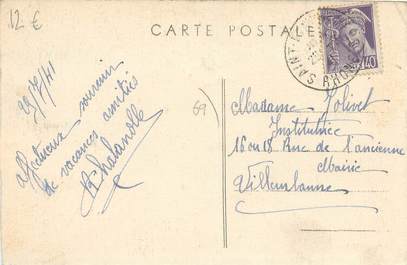 12 €
CARTE POSTALE
SAINT
RHONE
40
25/7/41
affectueux souvenir
de vacances amitiés
69
Madame Jolivet
Institutrice
16 ou 18 Rue de l'ancienne
Mairie
Villeurbanne